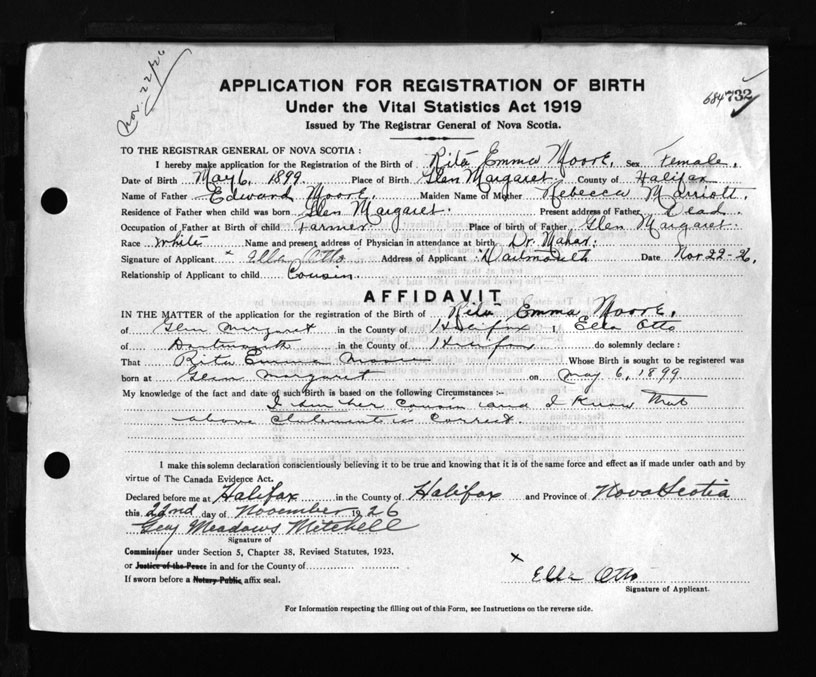 Nov. 22/26
APPLICATION FOR REGISTRATION OF BIRTH
Under the Vital Statistics Act 1919
684 732
Issued by The Registrar General of Nova Scotia.
TO THE REGISTRAR GENERAL OF NOVA SCOTIA :
I hereby make application for the Registration of the Birth of Rita Emma Moore. Sex Female.
Date of Birth May 6, 1899 Place of Birth Glen Margaret. County of Halifax
Name of Father Edward Moore. Maiden Name of Mother Rebecca Marriott.
Residence of Father when child was born Glen Margaret. Present address of Father Dead.
Occupation of Father at Birth of child Farmer. Place of birth of Father Glen Margaret.
Race White Name and present address of Physician in attendance at birth Dr. Mahar.
Signature of Applicant x Ella Otto Address of Applicant Dartmouth Date Nov 22-26.
Relationship of Applicant to child Cousin.
AFFIDAVIT
IN THE MATTER of the application for the registration of the Birth of Rita Emma Moore.
of Glen Margaret in the County of Halifax I, Ella Otto
of Dartmouth in the County of Halifax do solemnly declare :
That Rita Emma Moore Whose Birth is sought to be registered was
born at Glen Margaret on May 6, 1899
My knowledge of the fact and date of such Birth is based on the following Circumstances :–
I am her Cousin and I know that
above statement is correct.
I make this solemn declaration conscientiously believing it to be true and knowing that it is of the same force and effect as if made under oath and by
virtue of The Canada Evidence Act.
Declared before me at Halifax in the County of Halifax and Province of Nova Scotia
this 22nd day of November 1926
Meadows Mitchell
Signature of
Commissioner under Section 5, Chapter 38, Revised Statutes, 1923,
or Justice of the Peace in and for the County of
If sworn before a Notary Public affix seal.
x Ella Otto
Signature of Applicant.
For Information respecting the filling out of this Form, see Instructions on the reverse side.